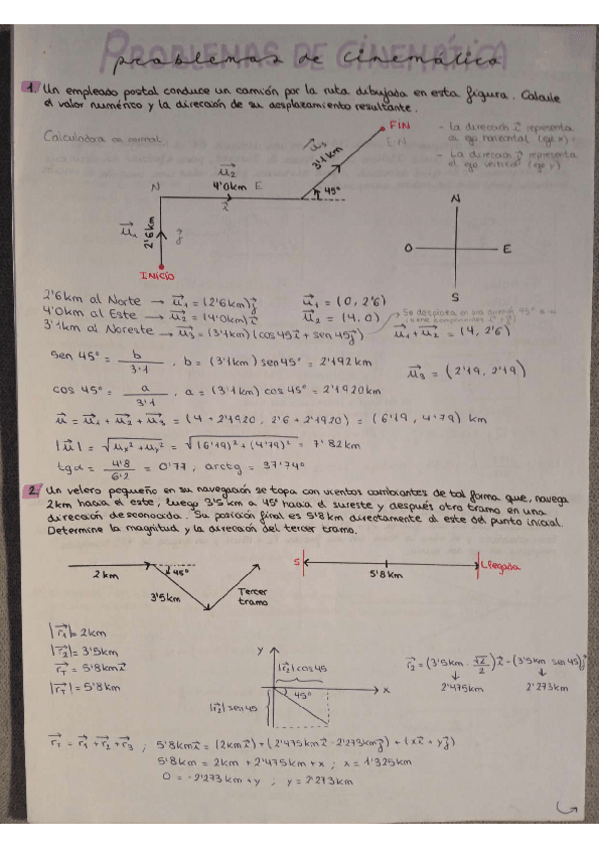 PROBLEMAS DE CINEMÁTICA
problemas de cinemática
1. Un empleado postal conduce un camión por la ruta dibujada en esta figura. Calcule
el valor numérico y la dirección de su desplazamiento resultante.
Calculadora en normal
FIN
EN
- La dirección i⃗ representa
el eje horizontal (eje x).
- La dirección j⃗ representa
el eje vertical (eje y)
u⃗₃
3'1km
45°
u⃗₂
4'0km
E
i⃗
N
u⃗₁
2'6km
j⃗
INICIO
N
O
E
S
2'6km al Norte → u⃗₁ = (2'6km)j⃗
u⃗₁ = (0, 2'6)
4'0km al Este → u⃗₂ = (4'0km)i⃗
u⃗₂ = (4, 0)
Se desplaza en una 45°
tiene componentes
3'1km al Noreste → u⃗₃ = (3'1km)(cos45i⃗ + sen45j⃗)
u⃗₁ + u⃗₂ = (4, 2'6)
sen 45° = b/3'1 , b = (3'1km)sen45° = 2'192km
u⃗₃ = (2'19, 2'19)
cos 45° = a/3'1 , a = (3'1km)cos45° = 2'1920km
u⃗ = u⃗₁ + u⃗₂ + u⃗₃ = (4 + 2'1920, 2'6 + 2'1920) = (6'19, 4'79) km
|u⃗| = √(uₓ² + uᵧ²) = √((6'19)² + (4'79)²) = 7'82km
tgα = 4'8/6'2 = 0'77, arctg = 37'74°
2. Un velero pequeño en su navegación se topa con vientos cambiantes de tal forma que, navega
2km hacia el este, luego 3'5km a 45° hacia el sureste y después otro tramo en una
dirección desconocida. Su posición final es 5'8km directamente al este del punto inicial.
Determine la magnitud y la dirección del tercer tramo.
2km
45°
3'5km
Tercer
tramo
S
5'8km
Llegada
|r⃗₁| = 2km
|r⃗₂| = 3'5km
r⃗T = 5'8kmi⃗
|r⃗T| = 5'8km
y
|r⃗₂|cos45
x
45°
|r⃗₂|sen45
r⃗₂ = (3'5km · √2/2)i⃗ - (3'5km sen45)j⃗
2'475km
2'273km
r⃗T = r⃗₁ + r⃗₂ + r⃗₃ ; 5'8kmi⃗ = (2kmi⃗) + (2'475kmi⃗ - 2'273kmj⃗) + (xi⃗ + yj⃗)
5'8km = 2km + 2'475km + x ; x = 1'325km
0 = -2'273km + y ; y = 2'273km